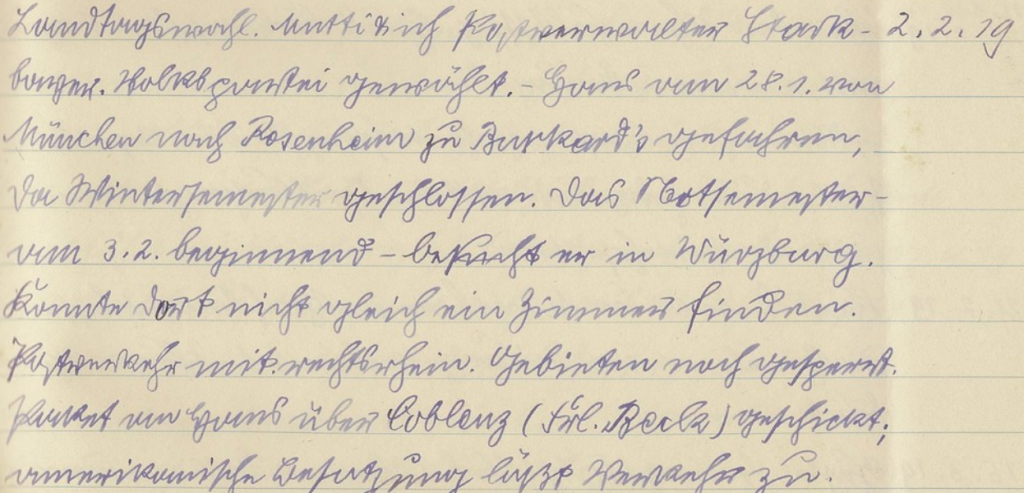 Landtagswahl. Mutti & ich Postverwalter Stark - 2.2.19
bayer. Volkspartei gewählt. - Hans am 28.1. von
München nach Rosenheim zu Burkard's gefahren,
da Wintersemester geschlossen. Das Notsemester -
am 3.2. beginnend - besucht er in Würzburg.
Konnte dort nicht gleich ein Zimmer finden.
Postverkehr mit rechtsrhein. Gebieten noch gesperrt.
Paket an Hans über Coblenz (Frl. Beck) geschickt;
amerikanische Besatzung läßt Verkehr zu.